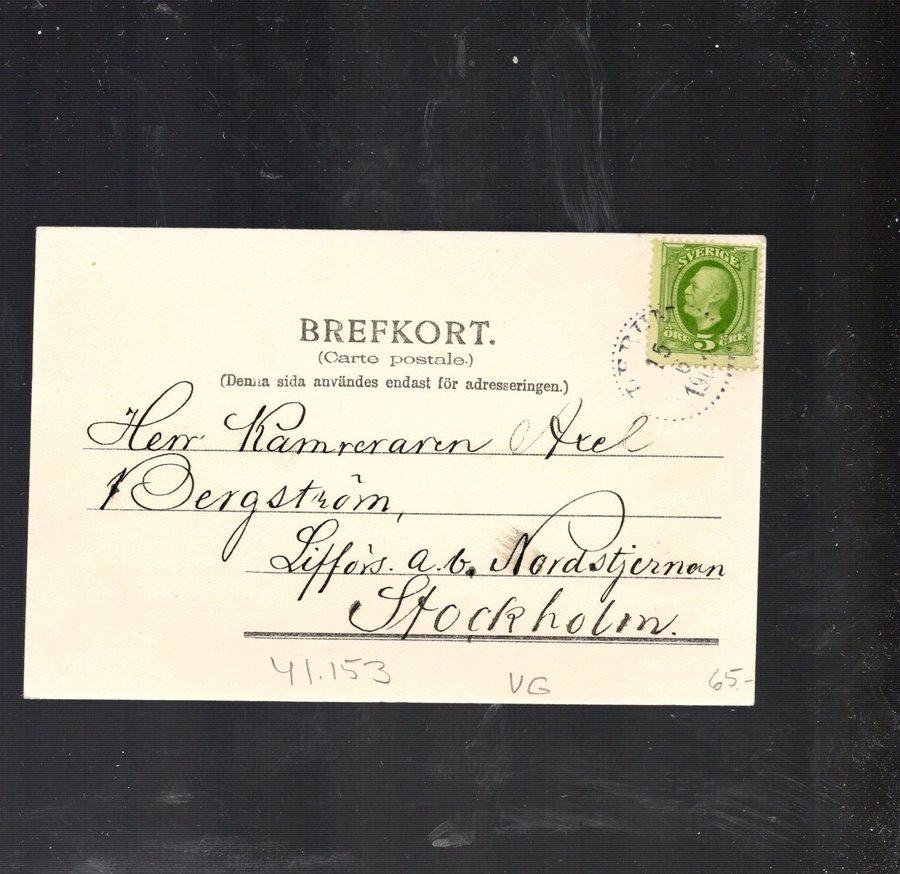 SVERIGE
ÖRE 5 ÖRE
BREFKORT.
(Carte postale.)
(Denna sida användes endast för adresseringen.)
15
6
Herr Kamreraren Axel
Bergström,
Lifförs. a.b. Nordstjernan
Stockholm.
41.153
VG
65.-